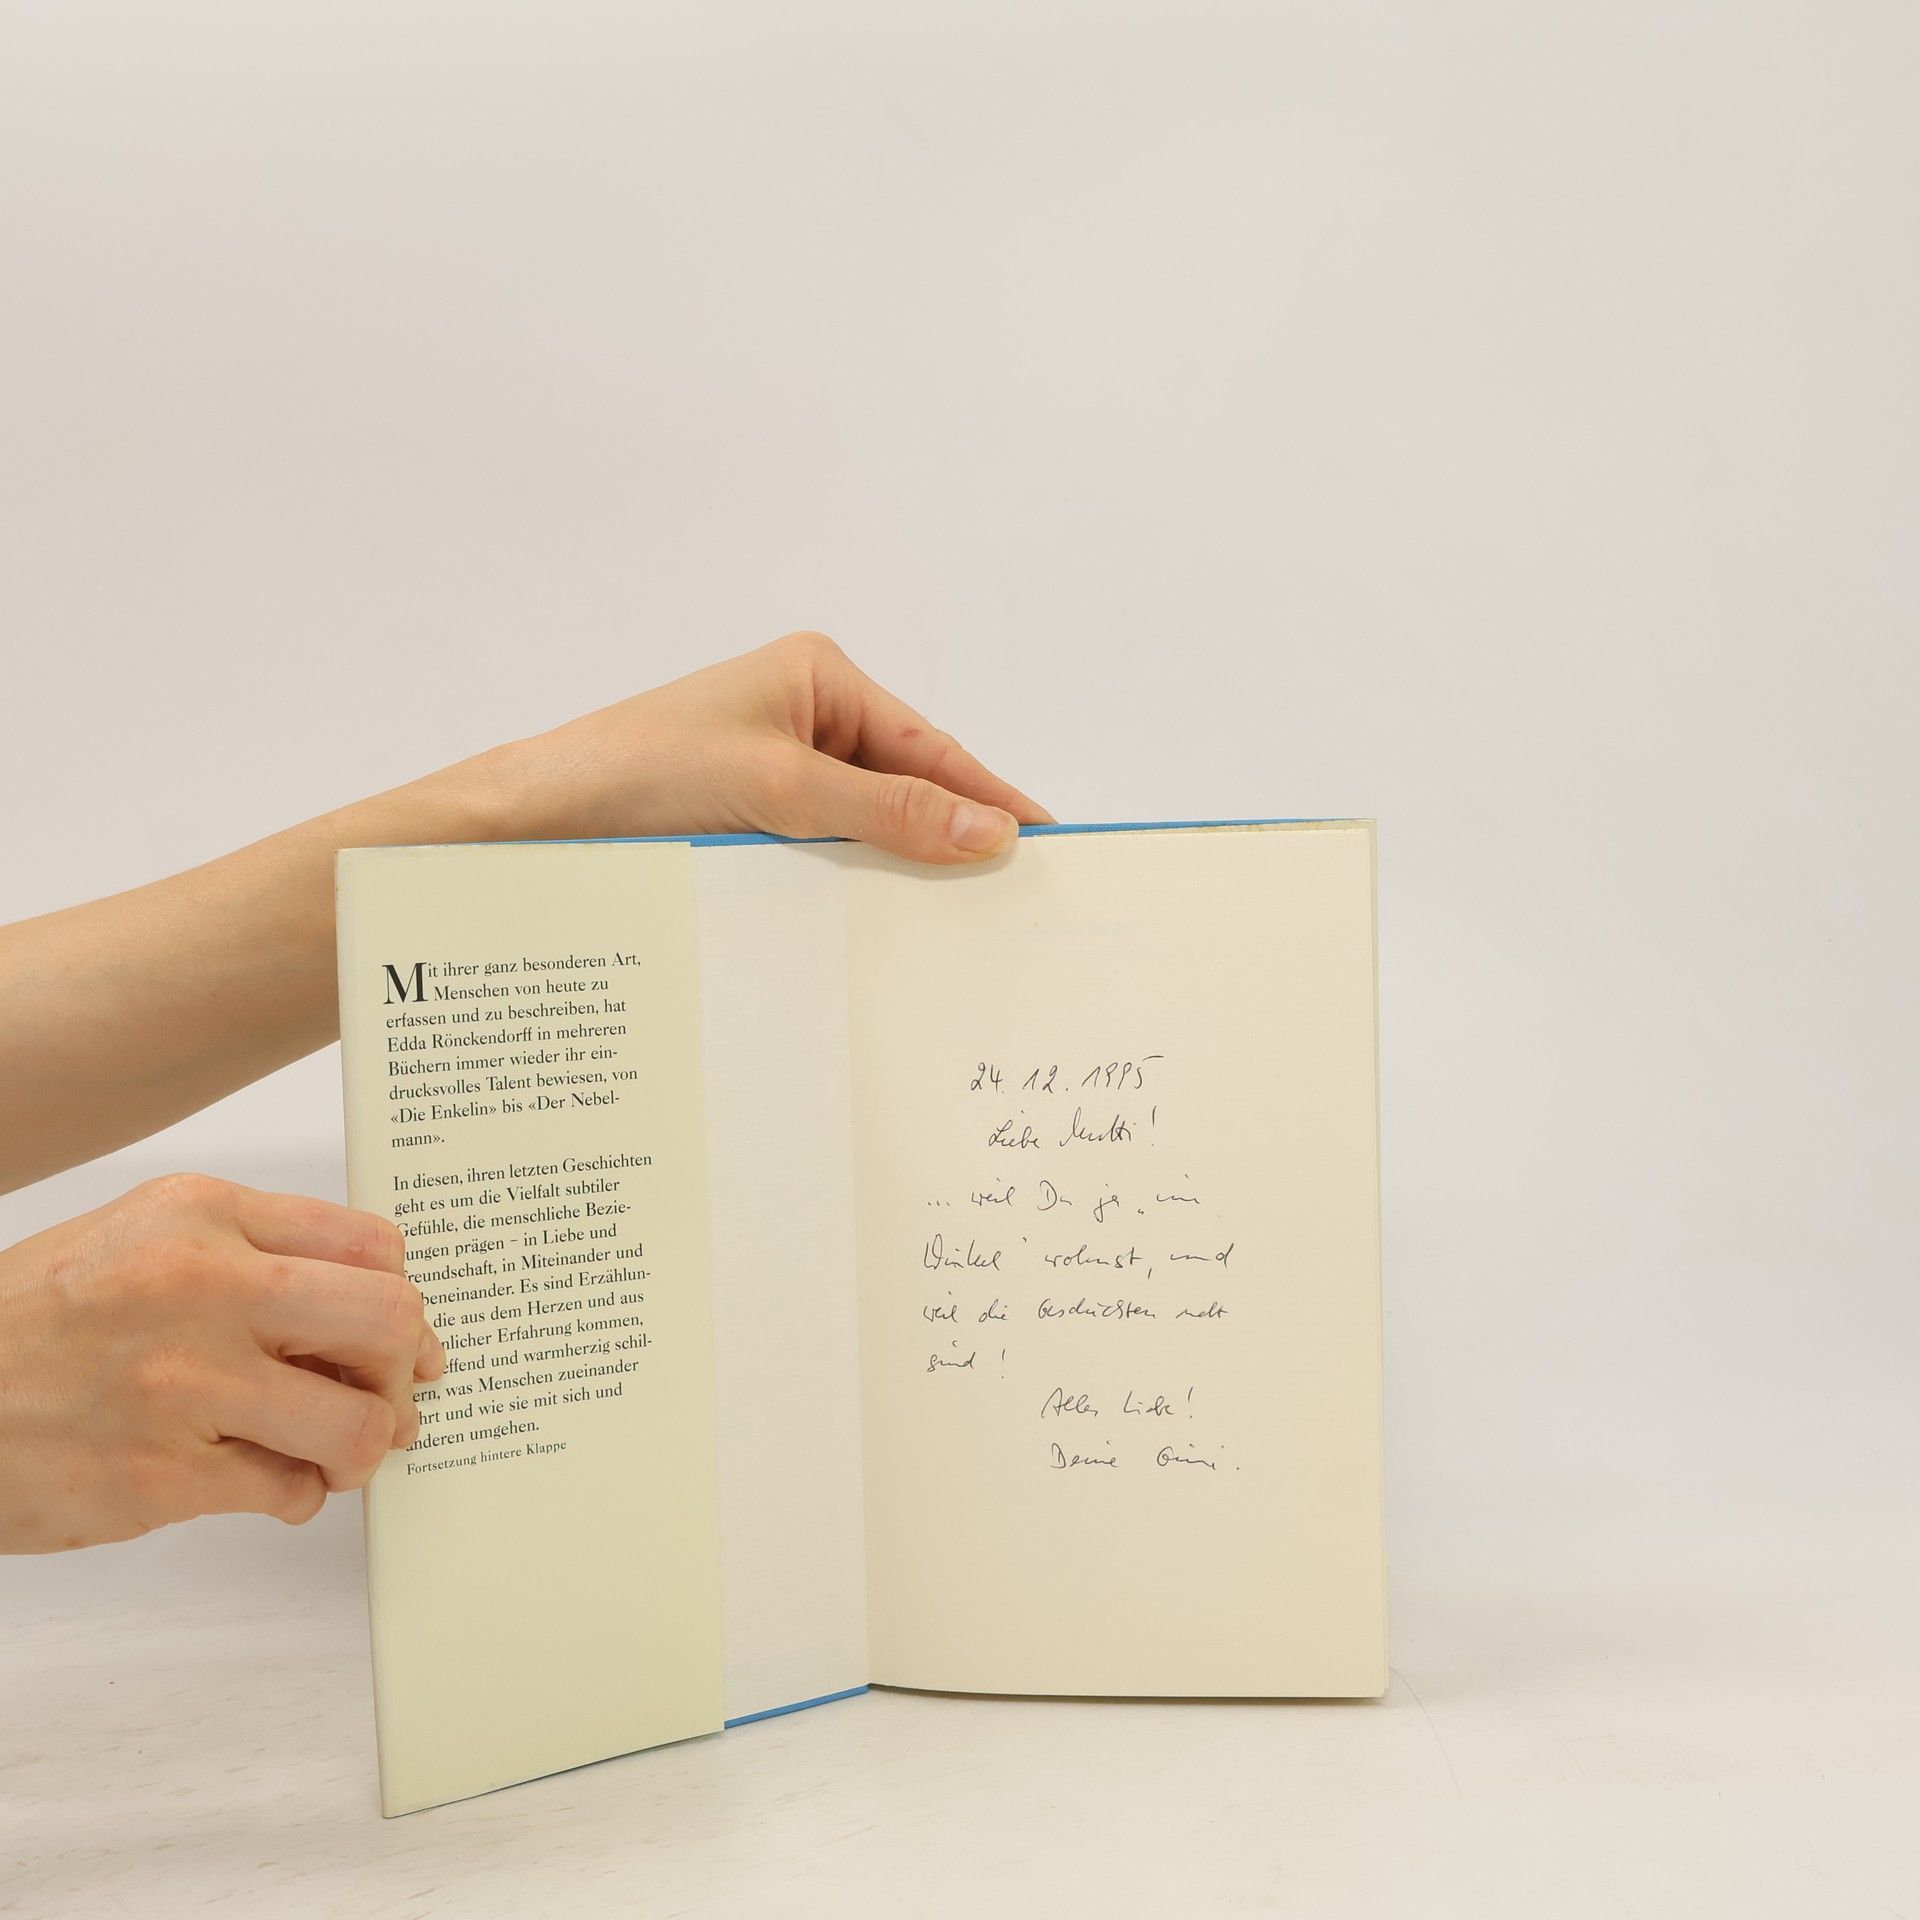 Mit ihrer ganz besonderen Art,
Menschen von heute zu
erfassen und zu beschreiben, hat
Edda Rönckendorff in mehreren
Büchern immer wieder ihr ein-
drucksvolles Talent bewiesen, von
«Die Enkelin» bis «Der Nebel-
mann».
In diesen, ihren letzten Geschichten
geht es um die Vielfalt subtiler
Gefühle, die menschliche Bezie-
ungen prägen – in Liebe und
reundschaft, in Miteinander und
beneinander. Es sind Erzählun-
die aus dem Herzen und aus
nlicher Erfahrung kommen,
effend und warmherzig schil-
ern, was Menschen zueinander
hrt und wie sie mit sich und
anderen umgehen.
Fortsetzung hintere Klappe
24. 12. 1995
Liebe Mutti!
... weil Du ja „im
Winkel" wohnst, und
weil die Geschichten nett
sind!
Alles Liebe!
Deine